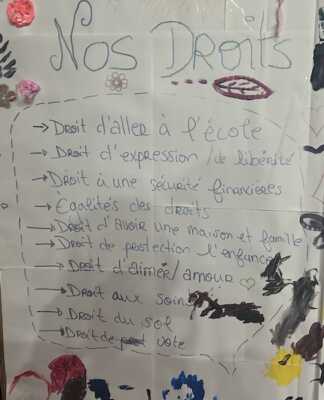 Nos DROITS
→ DROIT d'aller à l'école
→ DROIT d'expression / de libérité
→ DROIT à une sécurité financières
→ Egalités des droits
→ DROIT d'avoir une maison et famille
→ DROIT de protection l'enfance
→ DROIT d'aimer / amour ♡
→ DROIT aux soins
→ DROIT du sol
→ DROIT de vote